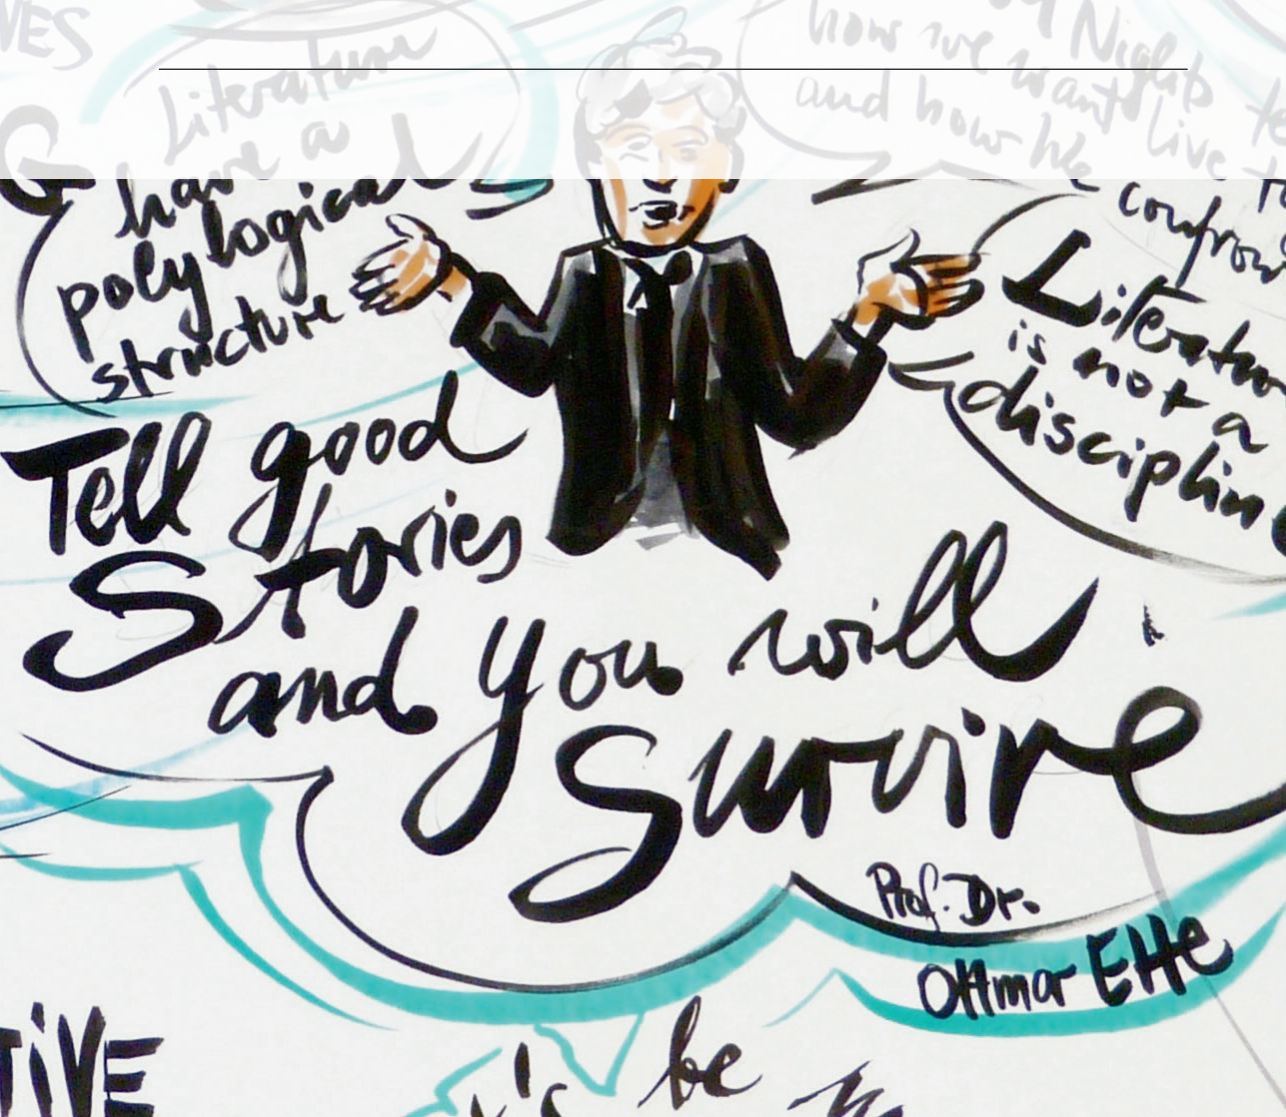 VES
G
Literature
have a
polylogical
structure
how we want
and how
Nights
live
confron
Literatur
is not a
disciplin
Tell good
Stories
and you will
Survive
Prof. Dr.
Ottmar Ette
TIVE
be